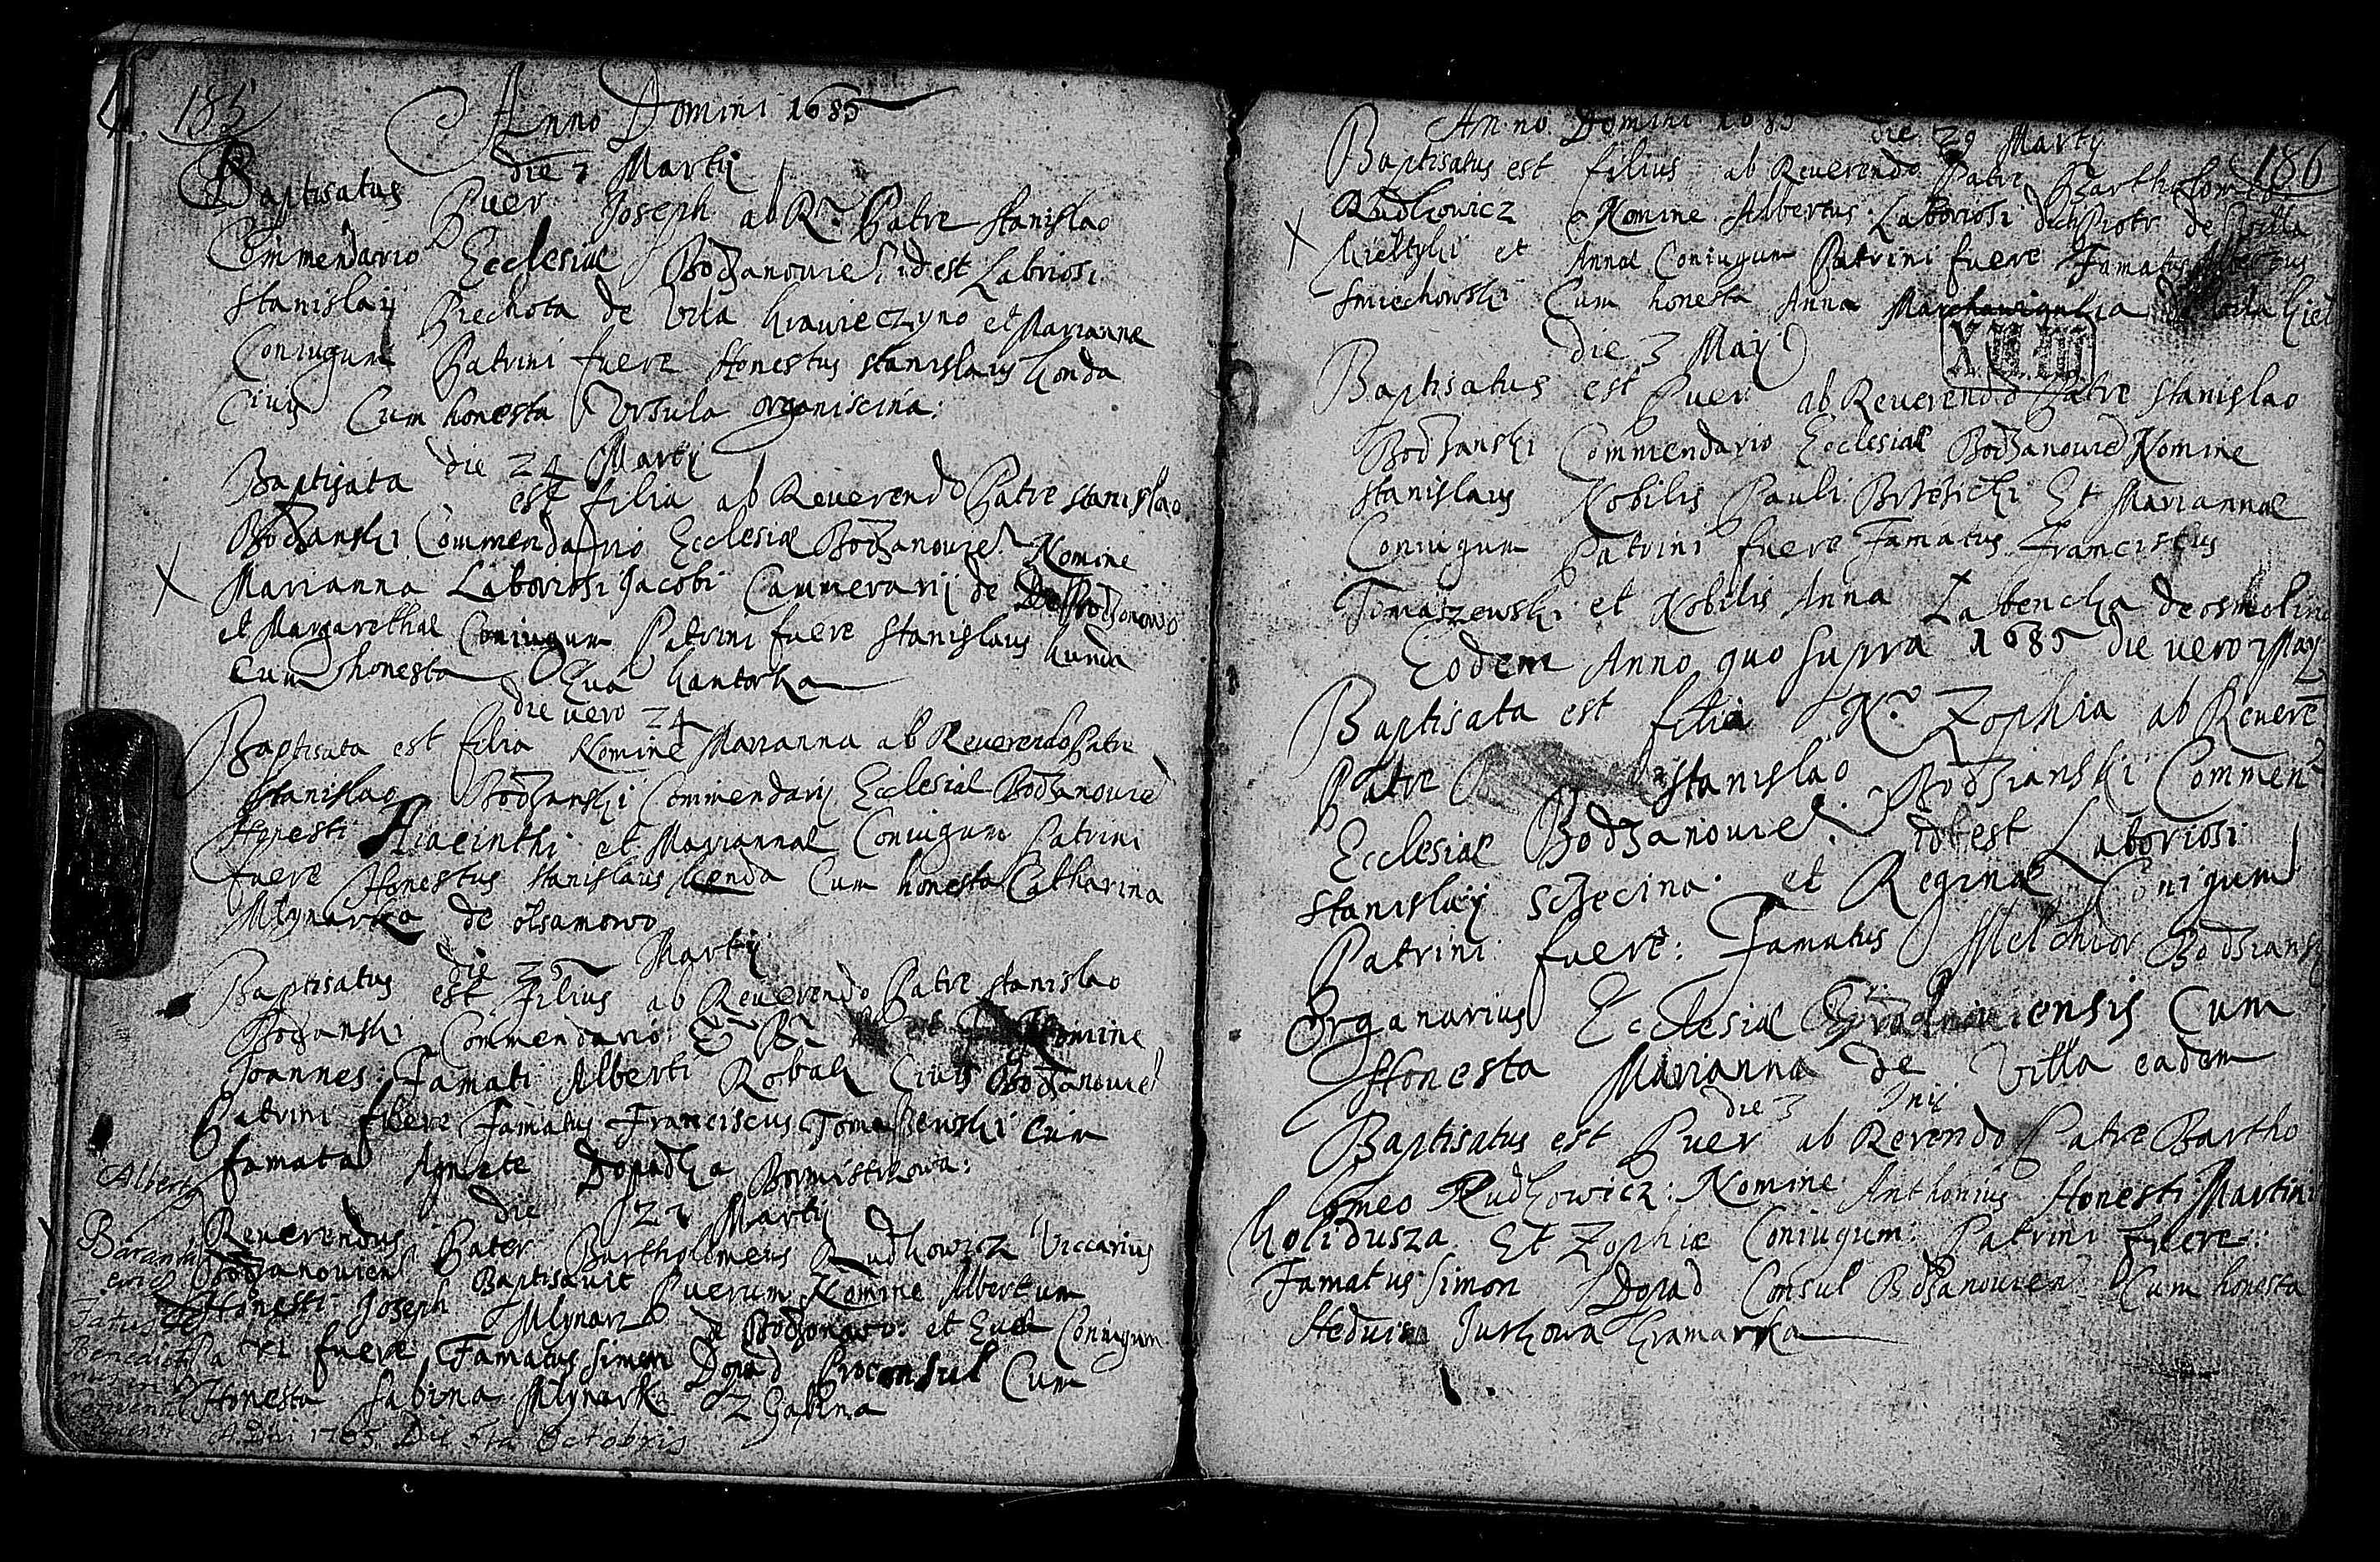 185
Anno Domini 1685
die 7 Martij
Baptisatus Puer Joseph ab R. Patre Stanislao
Commendario Ecclesiæ Bodzanouie. id est Labriosi
Stanislaij Piechota de Vila Krawieczyno et Mariannæ
Coniugum Patrini fuere Honestus Stanislaus Konda
Ciuis Cum honesta Vrsula organiscina:
die 24 Martij
Baptisata est filia ab Reuerendo Patre Stanislao
Bodzanski Commendario Ecclesiæ Bodzanouie. Nomine
Marianna Laboriosi Jacobi Cammerarij de
et Margarethæ Coniugum Patrini fuere Stanislaus Kunda
Cum honesta Eua Kantorka
die uero 24
Baptisata est filia Nomine Marianna ab Reuerendo Patre
Stanislao Bodzanski Commendarij Ecclesiæ Bodzanouie
Honesti Hiacinthi et Mariannæ Coniugum Patrini
fuere Honestus Stanislaus Kenda Cum honesta Catharina
Mlynarka de olsamowo
die 25 Martij
Baptisatus est filius ab Reuerendo Patre Stanislao
Bodzanski Commendario: Nomine
Joannes: Famati Alberti Robak Ciuis Bodzanouie
Patrini fuere Famatus Franciscus Tomaszewski Cum
famata Agnete Dopadka Bormistrzowa:
die 27 Martij
Reuerendus Pater Bartholomeus Rudkowicz Viccarius
Bodzanouien. Baptisauit Puerum Nomine Albertum
Honesti Joseph Mlynarz de Bodzonowo: et Euæ Coniugum
fuere Famatus Simon Dopad Proconsul Cum
Honesta Sabina Mlynark Z Gabina
Alberty
Benedict
A. Dni 1765 Die 5ta Octobris
186
Anno Domini 1685 die 29 Martij
Baptisatus est filius ab Reuerendo Patre Bartholomeo
Rudkowicz Nomine Albertus Laboriosi de Villa
et Annæ Coniugum Patrini fuere Famatus Albertus
Smiechowski Cum honesta Anna
die 3 Maij
Baptisatus est Puer ab Reuerendo Patre Stanislao
Bodzanski Commendario Ecclesiæ Bodzanouie Nomine
Stanislaus Nobilis Pauli Brzesicki Et Mariannæ
Coniugum Patrini fuere Famatus Franciscus
Tomaszewski et Nobilis Anna Labencka de osmolino
Eodem Anno quo Supra 1685 die uero 7 Maij
Baptisata est filia N. Zophia ab Reuere
Patre Stanislao Bodzianski Commen
Ecclesiæ Bodzanouie. id est Laboriosi
Stanislaij Szczecina. et Reginæ Conigum
Patrini fuere: Famatus Melchior Bodzianski
Organarius Ecclesiæ Cum
Honesta Marianna de Villa eadem
die 3 Jnij
Baptisatus est Puer ab Rerendo Patre Bartho
lomeo Rudkowicz: Nomine Anthonius Honesti Martini
Kolidusza Et Zophiæ Coniugum: Patrini fuere:
Famatus Simon Dopad Consul Bodzanouien Cum honesta
Heduisa Jurkowa Kramarka